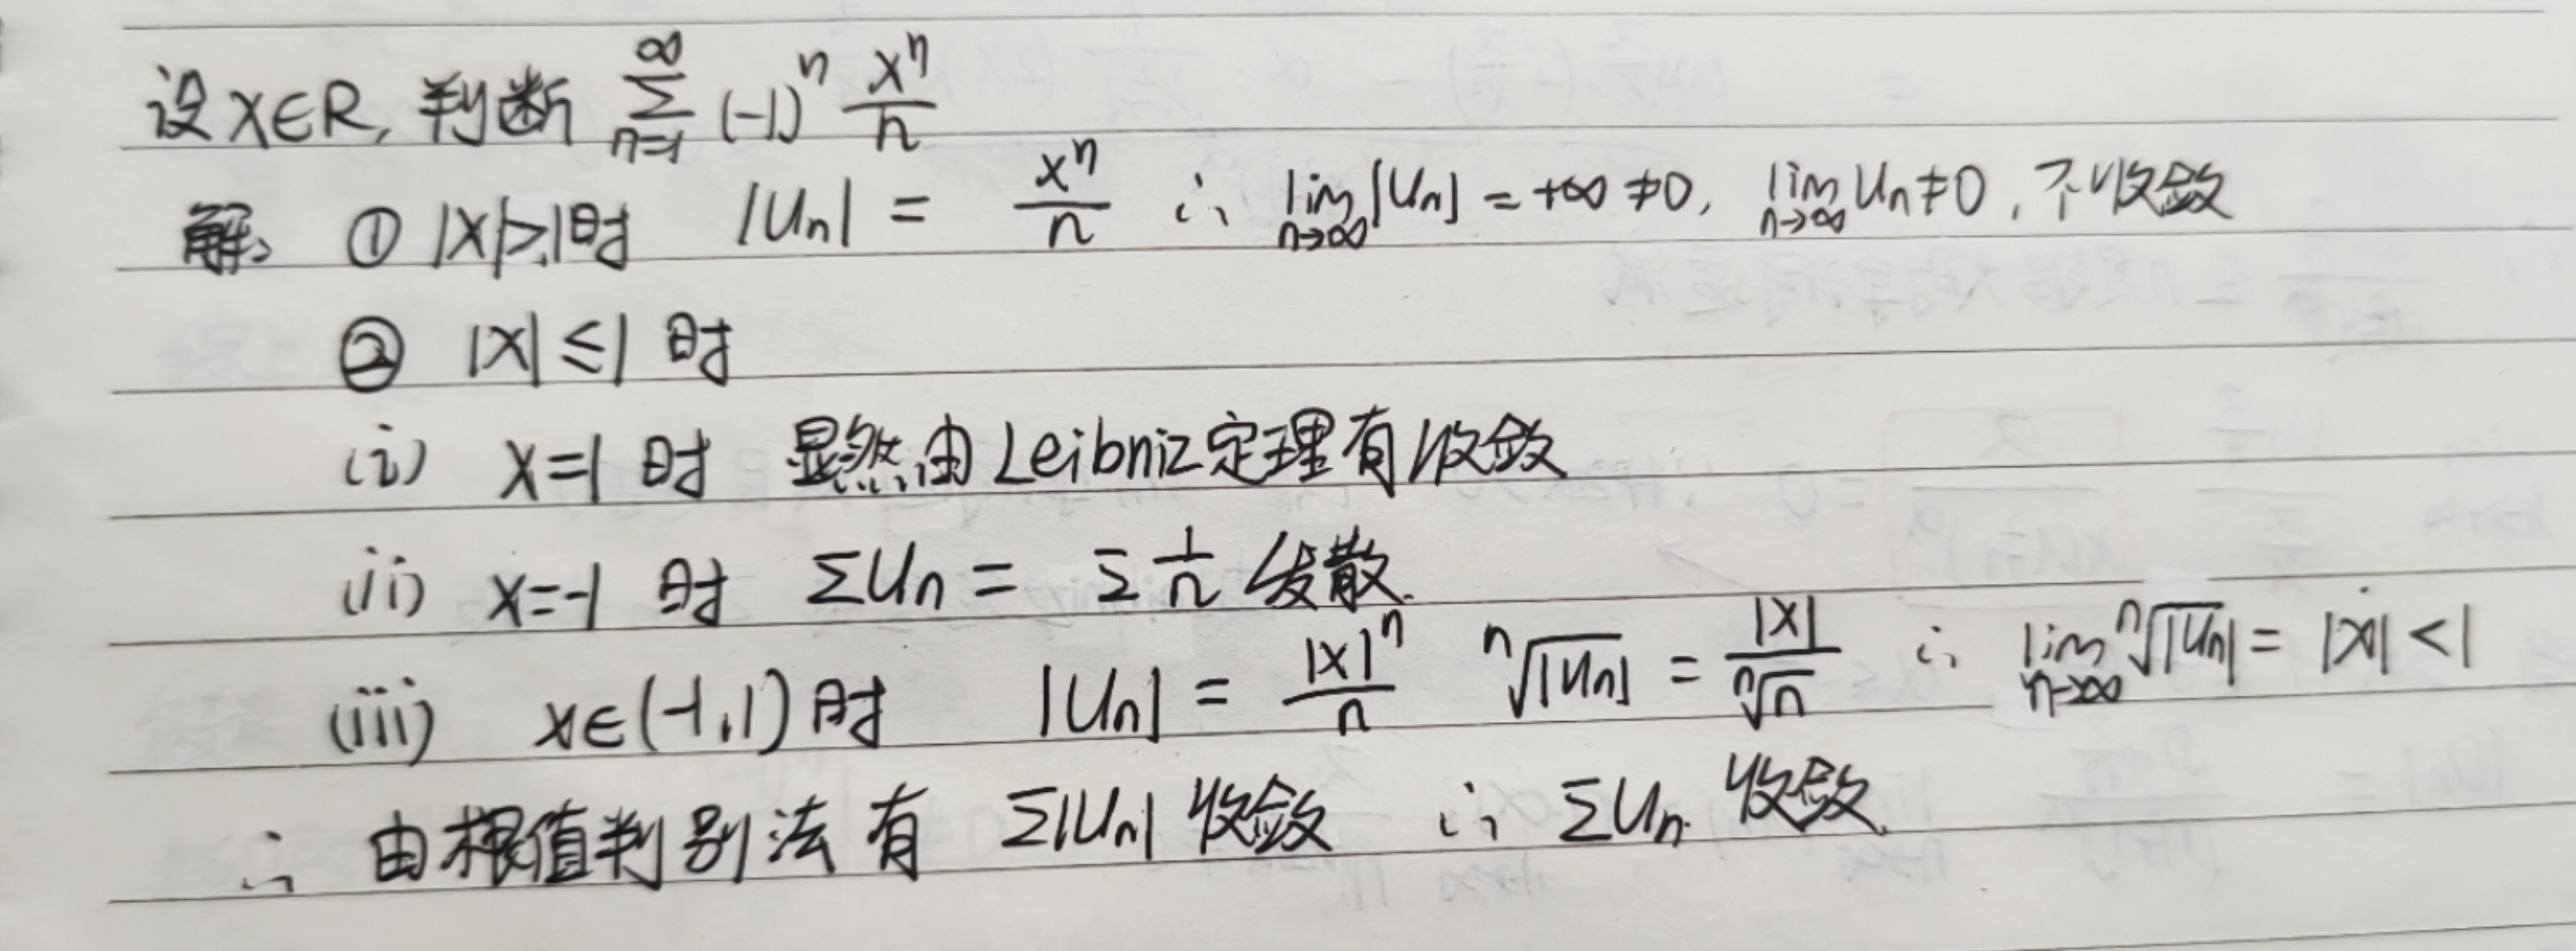 设x∈R, 判断 $\sum_{n=1}^{\infty} (-1)^n \frac{x^n}{n}$
解: ① |x|>1时 $|U_n| = \frac{x^n}{n}$ ∴ $\lim_{n\to\infty}|U_n| = +\infty \neq 0$, $\lim_{n\to\infty} U_n \neq 0$, 不收敛
② |x|≤1 时
(i) x=1 时 显然由Leibniz定理有收敛
(ii) x=-1 时 $\Sigma U_n = \Sigma \frac{1}{n}$ 发散.
(iii) x∈(-1,1)时 $|U_n| = \frac{|x|^n}{n}$ $\sqrt[n]{|U_n|} = \frac{|x|}{\sqrt[n]{n}}$ ∴ $\lim_{n\to\infty} \sqrt[n]{|U_n|} = |x| < 1$
∴ 由根值判别法有 $\Sigma|U_n|$ 收敛 ∴ $\Sigma U_n$ 收敛.